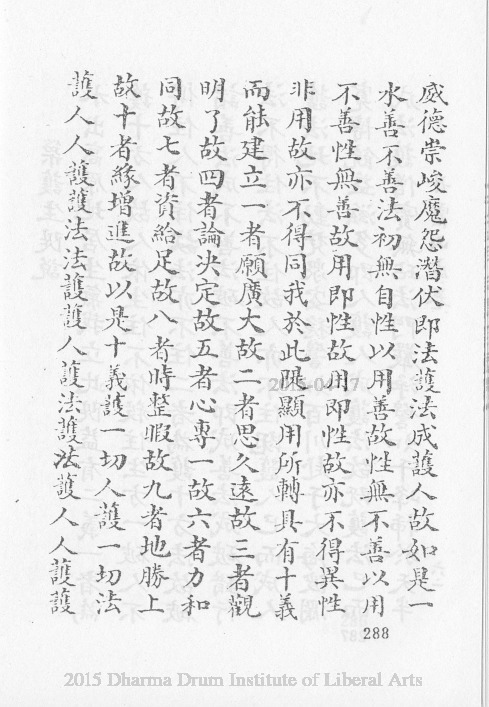 威德崇峻魔怨潛伏即法護法成護人故如是一
水善不善法初無自性以用善故性無不善以用
不善性無善故用即性故用即性故亦不得異性
非用故亦不得同我於此限顯用所轉具有十義
而能建立一者願廣大故二者思久遠故三者觀
明了故四者論決定故五者心專一故六者力和
同故七者資給足故八者時整暇故九者地勝上
故十者緣增進故以是十義護一切人護一切法
護人人護護法法護護人護法護法護人人護護
288
2015 Dharma Drum Institute of Liberal Arts